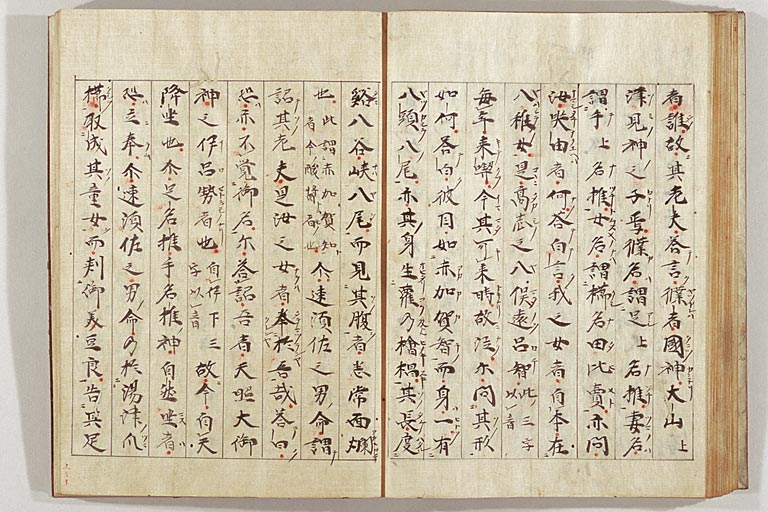 者誰故其老夫答言僕者國神大山上
津見神之子焉僕名謂足上名推妻名
謂手上名推女名謂櫛名田比賣亦問
汝哭由者何答白言我之女者自本在
八稚女是高志之八俣遠呂智此三字以音
毎年来喫今其可来時故泣尔問其形
如何答白彼目如赤加賀智而身一有
八頭八尾亦其身生蘿乃檜榲其長度
谿八谷峡八尾而見其腹者悉常血爛
也此謂赤加賀知者今酸醤者也尒速須佐之男命謂
詔其老夫是汝之女者奉於吾哉答白
恐亦不覚御名尔答詔吾者天照大御
神之伊呂勢者也自伊下三字以音故今自天
降坐也尒足名推手名推神自然坐者
恐立奉尒速須佐之男命乃於湯津爪
櫛取成其童女而刺御美豆良告其足